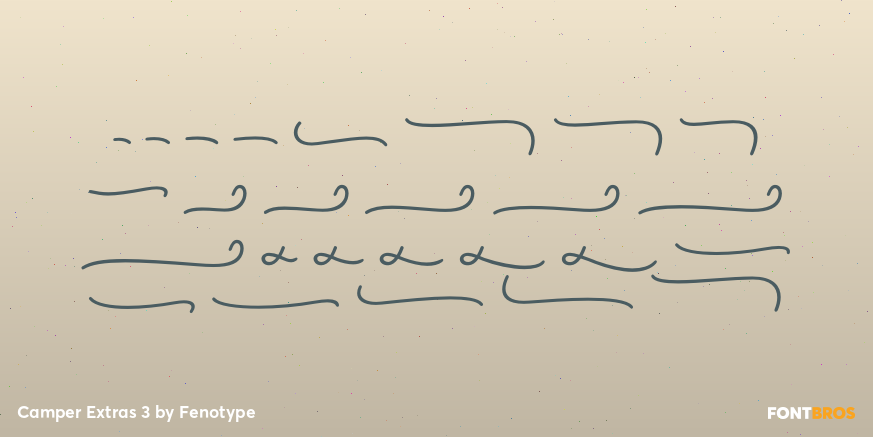 Camper Extras 3 by Fenotype
FONTBROS